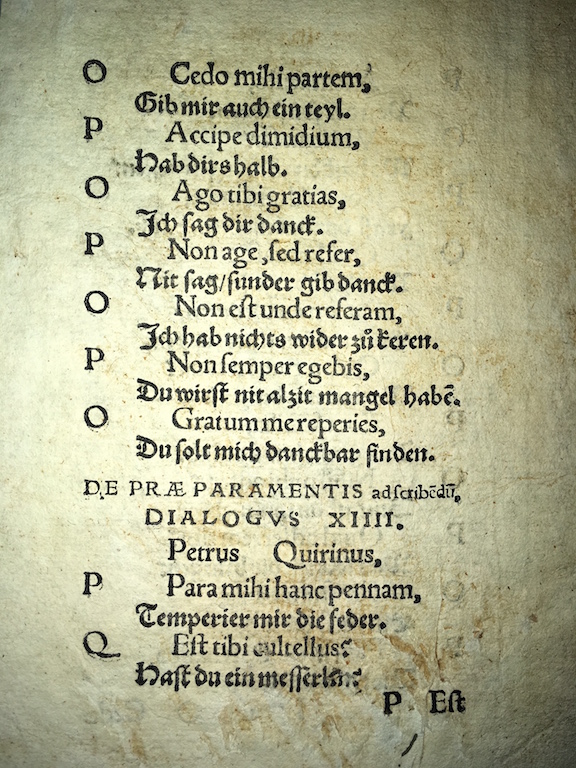 O Cedo mihi partem,
Gib mir auch ein teyl.
P Accipe dimidium,
Hab dirs halb.
O Ago tibi gratias,
Ich sag dir danck.
P Non age, sed refer,
Nit sag/sunder gib danck.
O Non est unde referam,
Ich hab nichts wider zů keren.
P Non semper egebis,
Du wirst nit alzit mangel habē.
O Gratum me reperies,
Du solt mich danckbar finden.
DE PRÆPARAMENTIS ad scribēdū,
DIALOGVS XIIII.
Petrus Quirinus,
P Para mihi hanc pennam,
Temperier mir die feder.
Q Est tibi cultellus?
Hast du ein messerlin?
P Est